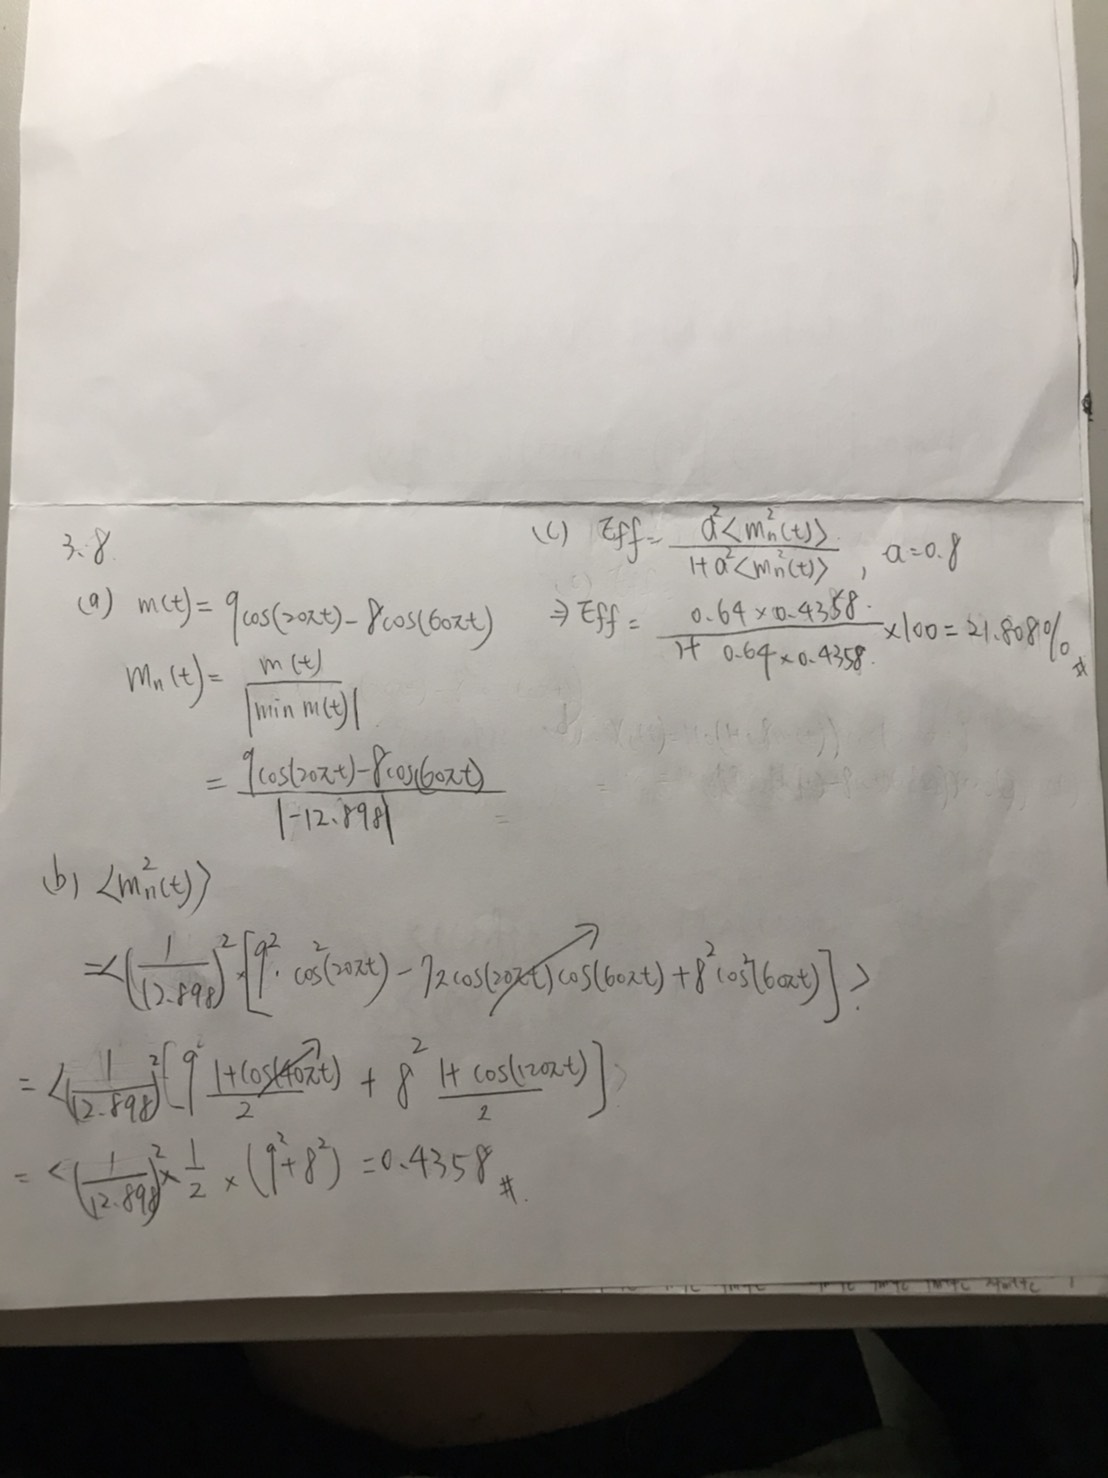 3.8
(a) m(t) = 9cos(20πt) - 8cos(60πt)
mn(t) = m(t) / |min m(t)|
= 9cos(20πt) - 8cos(60πt) / |-12.898|
(b) <mn²(t)>
= <(1/12.898)² × [9² · cos²(20πt) - 72cos(20πt)cos(60πt) + 8²cos²(60πt)]>
= <(1/12.898)² [9² 1+cos(40πt)/2 + 8² 1+cos(120πt)/2]>
= <(1/12.898)² × 1/2 × (9²+8²) = 0.4358 #.
(c) Eff = a²<mn²(t)> / 1+a²<mn²(t)> , a=0.8
⇒ Eff = 0.64 × 0.4358 / 1+ 0.64 × 0.4358 × 100 = 21.808% #